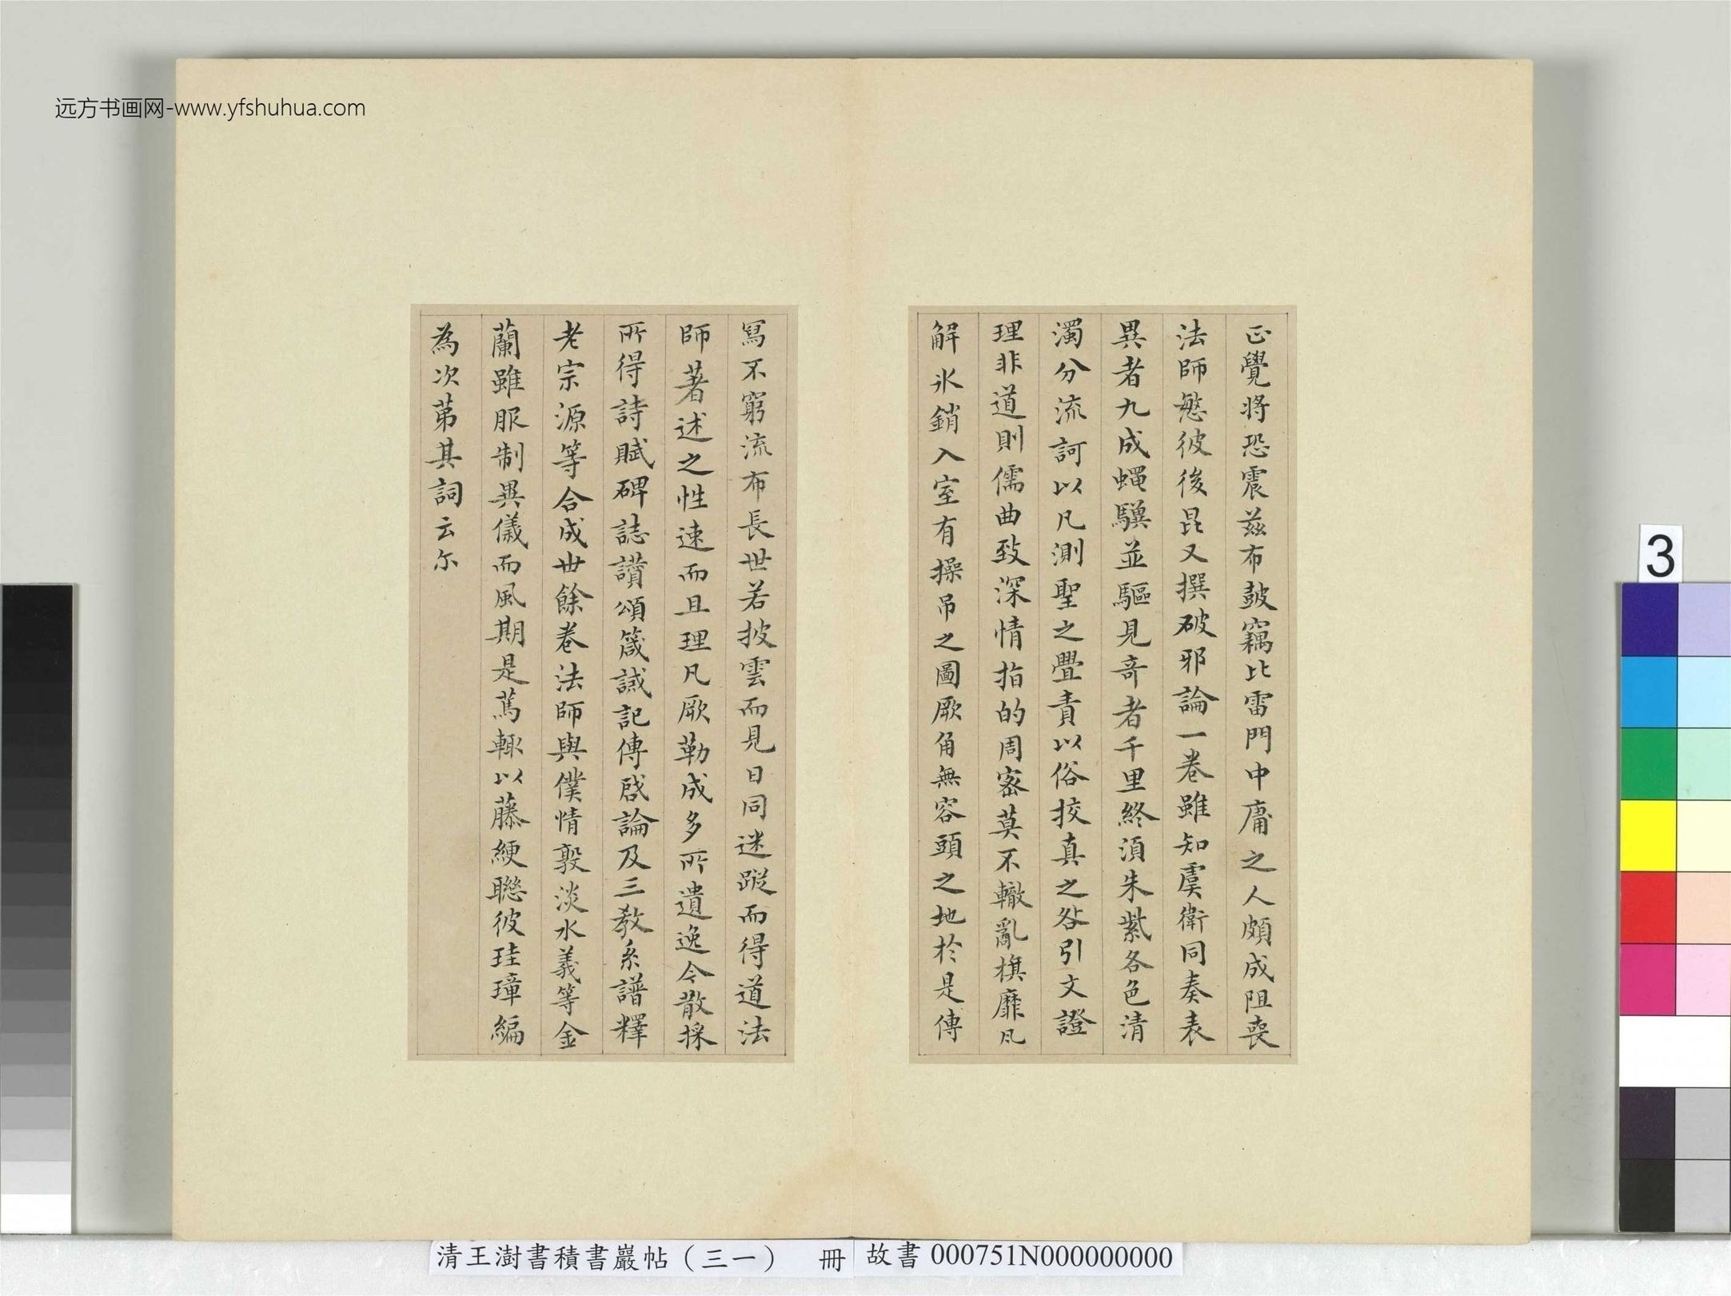 远方书画网-www.yfshuhua.com
正覺将恐震茲布鼓竊比雷門中庸之人頗成阻喪
法師慜彼後昆又撰破邪論一卷雖知虞衛同奏表
異者九成蝇驥並驅見奇者千里終湏朱紫各色清
濁分流訶以凡測聖之舋責以俗挍真之咎引文證
理非道則儒曲致深情指的周密莫不轍亂旗靡凡
解氷銷入室有操吊之圖厥角無容頭之地於是傳
寫不窮流布長世若披雲而見日同迷蹤而得道法
師著述之性速而且理凡厥勒成多所遺逸今散採
所得詩賦碑誌讃頌箴誡記傳啟論及三教系譜釋
老宗源等合成卅餘卷法師與僕情敦淡水義等金
蘭雖服制異儀而風期是篤輒以藤綆聯彼珪璋編
為次苐其詞云尔
清王澍書積書巖帖（三一） 冊 故書 000751N000000000
3